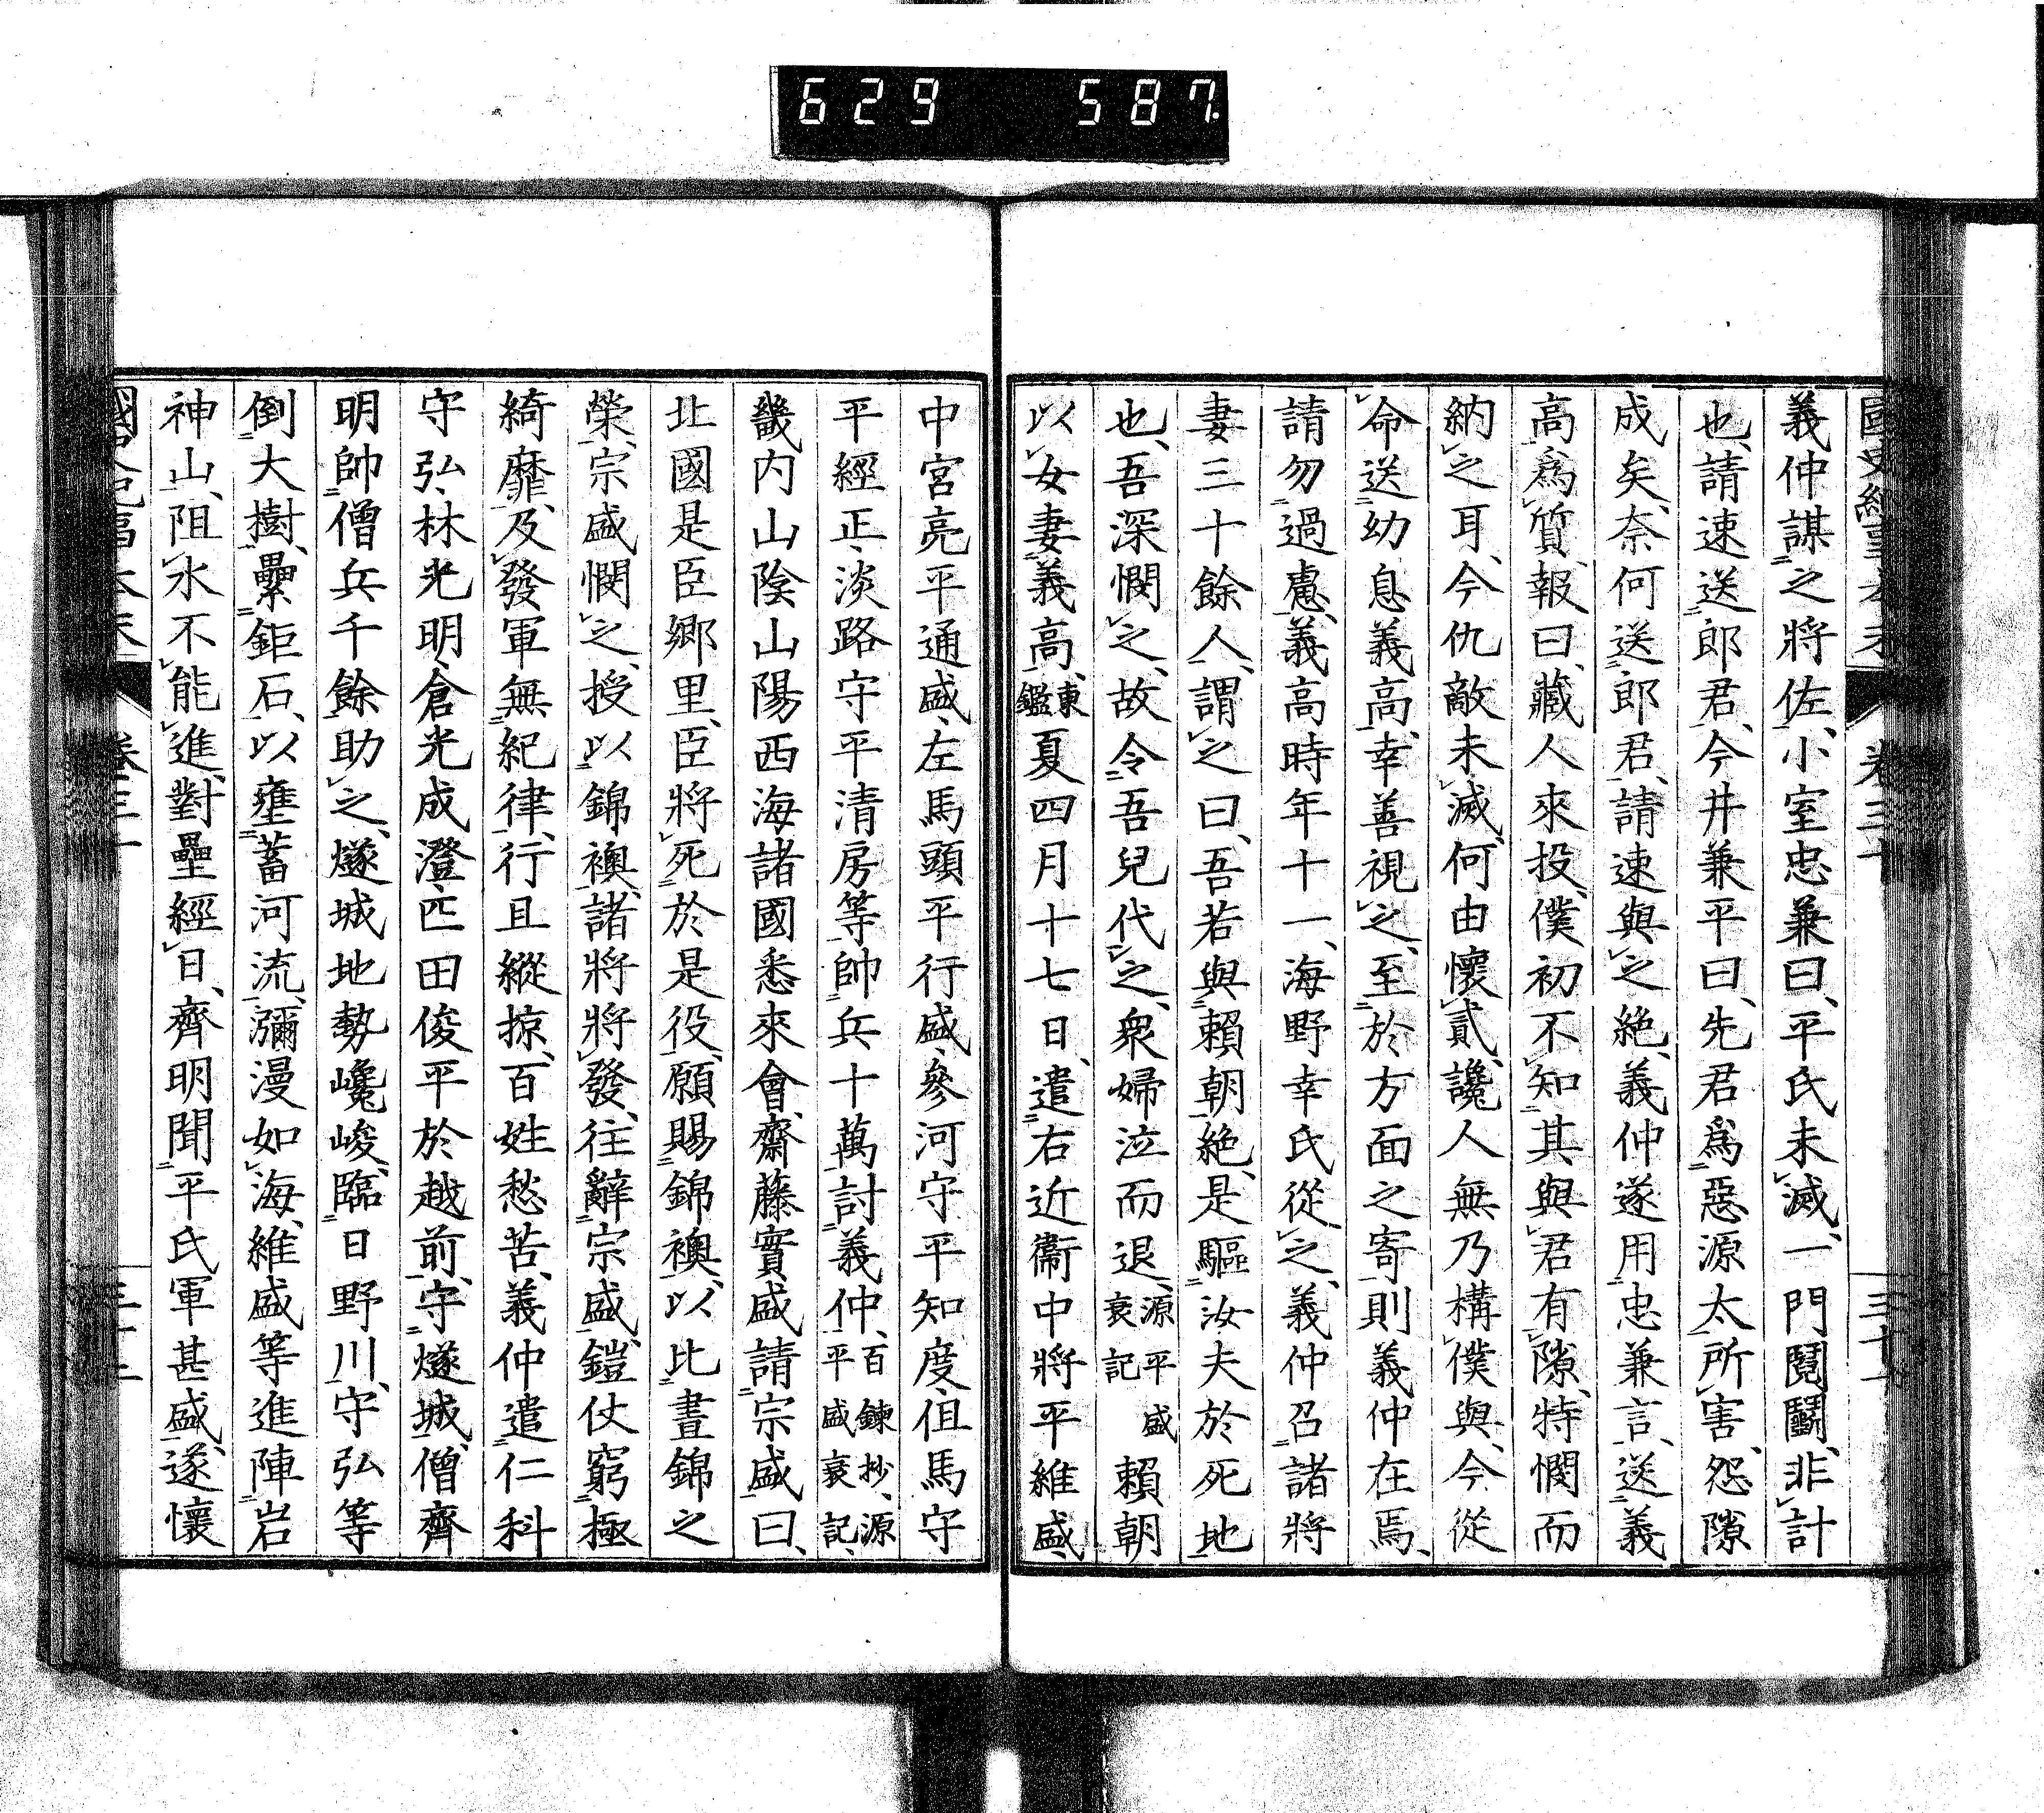 629 587
義仲謀之將佐、小室忠兼曰、平氏未滅、一門䦧鬪、非計
也、請速送郎君、今井兼平曰、先君爲惡源太所害、怨隙
成矣、奈何送郎君、請速與之絶、義仲遂用忠兼言、送義
高爲質、報曰、藏人來投、僕初不知其與君有隙、特憫而
納之耳、今仇敵未滅、何由懷貳、讒人無乃構僕與、今從
命送幼息義高、幸善視之、至於方面之寄、則義仲在焉、
請勿過慮、義高時年十一、海野幸氏從之、義仲召諸將
妻三十餘人、謂之曰、吾若與賴朝絶、是驅汝夫於死地
也、吾深憫之、故令吾兒代之、衆婦泣而退、源平盛衰記賴朝
以女妻義高、東鑑夏四月十七日、遣右近衞中將平維盛、
中宮亮平通盛、左馬頭平行盛、參河守平知度、但馬守
平經正、淡路守平清房等、帥兵十萬討義仲、百鍊抄、源平盛衰記、
畿内山陰山陽西海諸國悉來會、齋藤實盛請宗盛曰、
北國是臣鄉里、臣將死於是役、願賜錦襖、以比晝錦之
榮、宗盛憫之、授以錦襖、諸將將發、往辭宗盛、鎧仗窮極
綺靡、及發軍無紀律、行且縱掠、百姓愁苦、義仲遣仁科
守弘、林光明、倉光成澄、匹田俊平於越前、守燧城、僧齊
明帥僧兵千餘助之、燧城地勢巉峻、臨日野川、守弘等
倒大樹、纍鉅石、以壅蓄河流、瀰漫如海、維盛等進陣岩
神山、阻水不能進、對壘經日、齊明聞平氏軍甚盛、遂懷